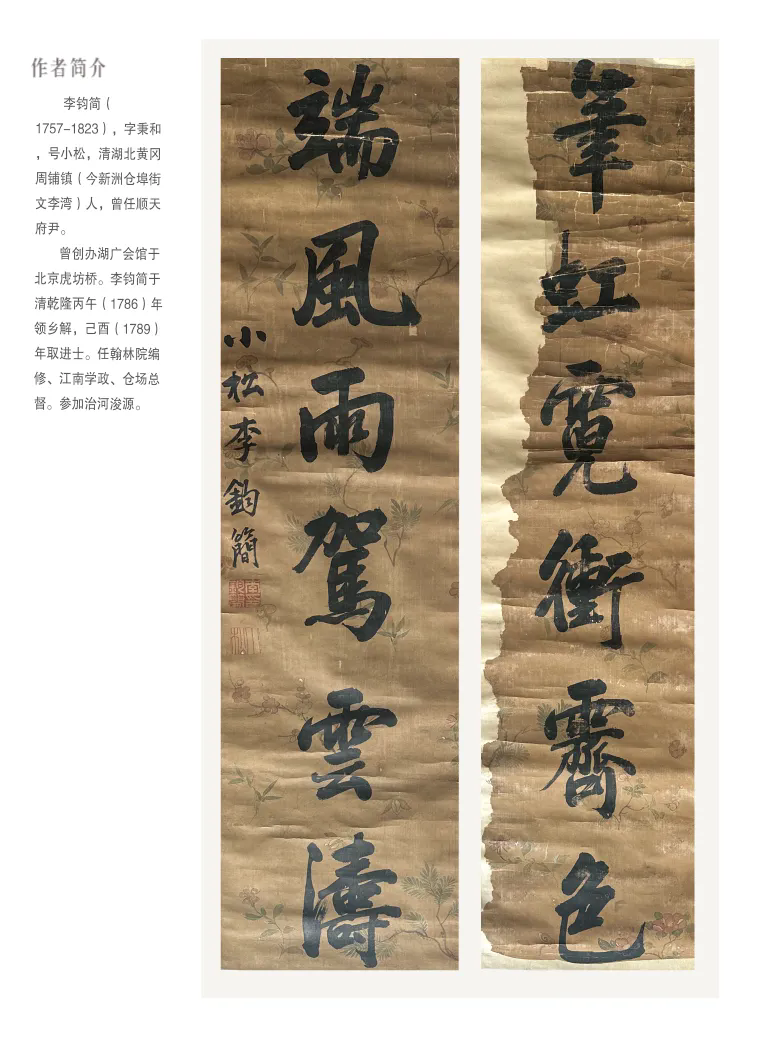 作者简介
李钧简（
1757-1823），字秉和
，号小松，清湖北黄冈
周铺镇（今新洲仓埠街
文李湾）人，曾任顺天
府尹。
曾创办湖广会馆于
北京虎坊桥。李钧简于
清乾隆丙午（1786）年
领乡解，己酉（1789）
年取进士。任翰林院编
修、江南学政、仓场总
督。参加治河浚源。
筆虹霓衝霽色
端風雨駕雲濤
小松李鈞簡